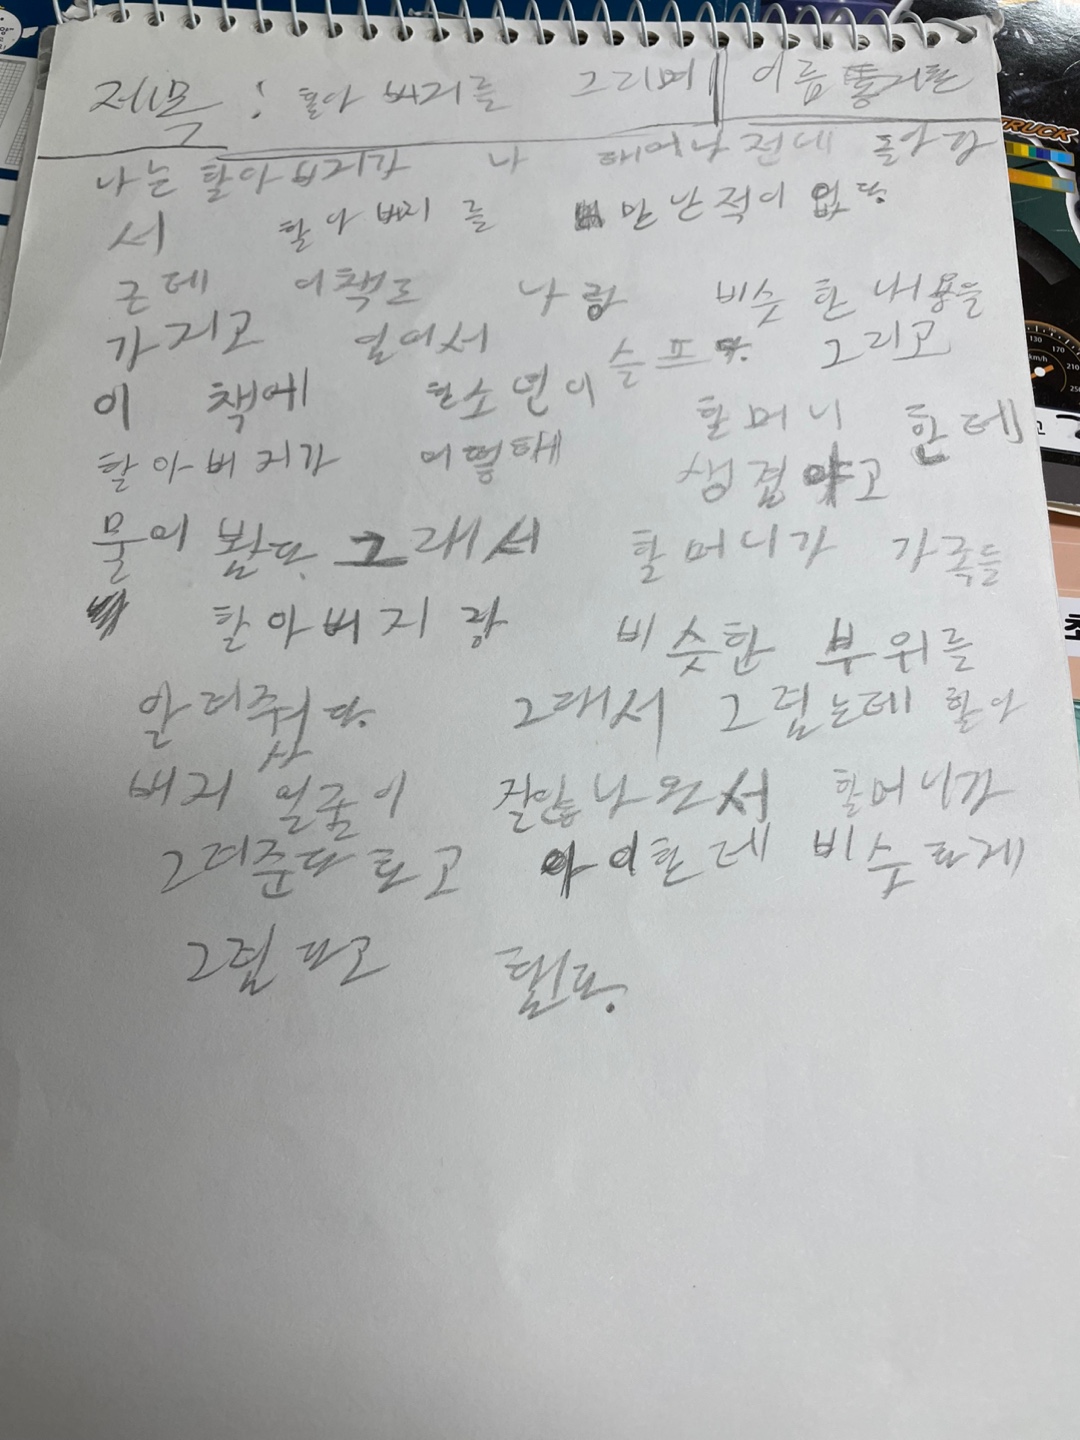 제목 : 할아버지를 그리며 이름
나는 할아버지가 나 태어나전네 돌아가
서 할아버지를 만난적이 없다.
근데 이책도 나랑 비슷한 내용을
가지고 있어서 슬프다. 그리고
이 책에 한소년이 할머니 한테
할아버지가 어떻해 생겼냐고
물어 봤다. 그래서 할머니가 가족들
할아버지랑 비슷한 부위를
알려줬다. 그래서 그렸는데 할아
버지 얼굴이 잘않나와서 할머니가
그려준다 하고 아이한테 비슷하게
그렸다고 했다.
TRUCK
130
170
210
250
km/h